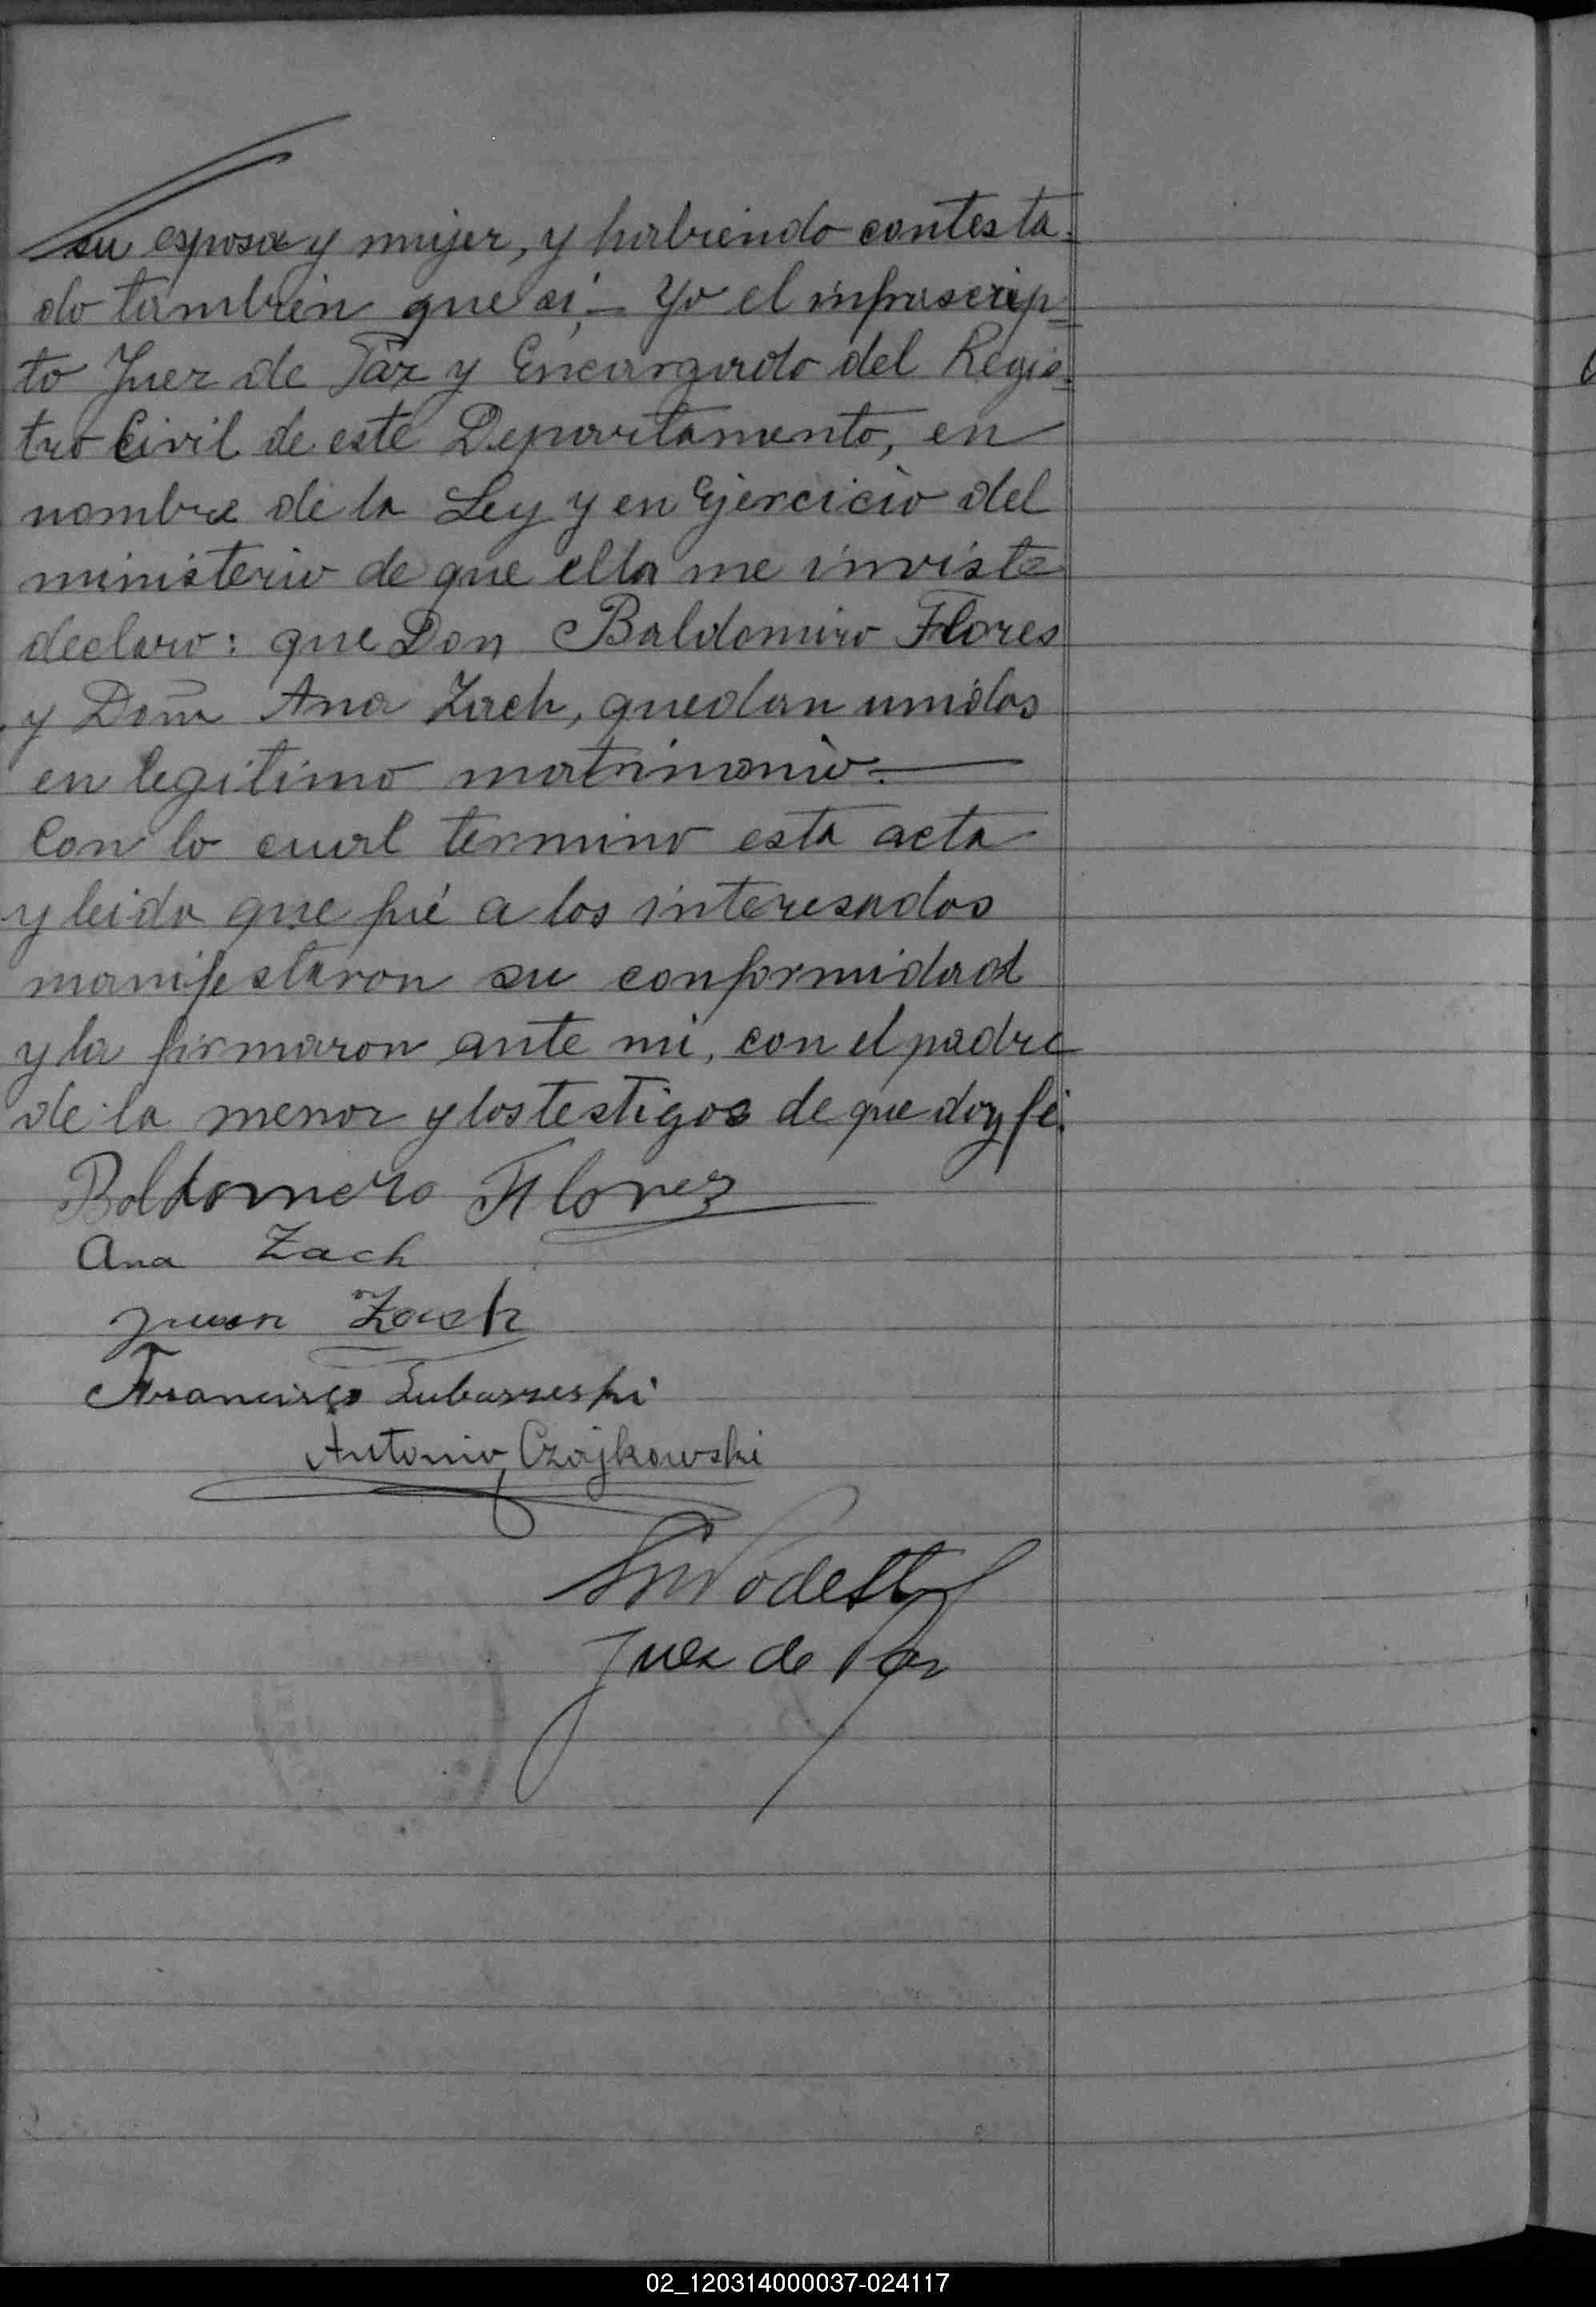 su esposa y mujer, y habiendo contesta-
do tambien que si,- Yo el infrascrip-
to Juez de Paz y Encargado del Regis-
tro Civil de este Departamento, en
nombre de la Ley y en Ejercicio del
ministerio de que ella me inviste
declaro: que Don Baldomiro Flores
y Doña Ana Zach, quedan unidos
en legitimo matrimonio.
Con lo cual termino esta acta
y leida que fué a los interesados
manifestaron su conformidad
y la firmaron ante mi, con el padre
de la menor y los testigos de que doy fé.
Baldomero Flores
Ana Zach
Juan Zach
Francisco
Antonio Czajkowski
Podestá
Juez de Paz
02_120314000037-024117